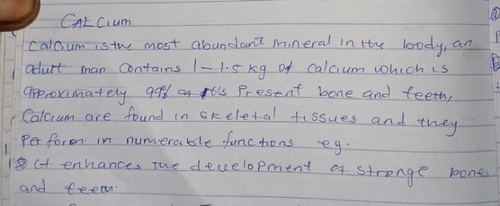 CALCium
Calcium is the most abundant mineral in the body, an
adult man Contains 1-1.5kg of calcium which is
approximately 99% of its Present bone and teeth,
Calcium are found in skeletal tissues and they
Perform in numerable functions eg.
It enhances the development of stronge bones
and teeth.